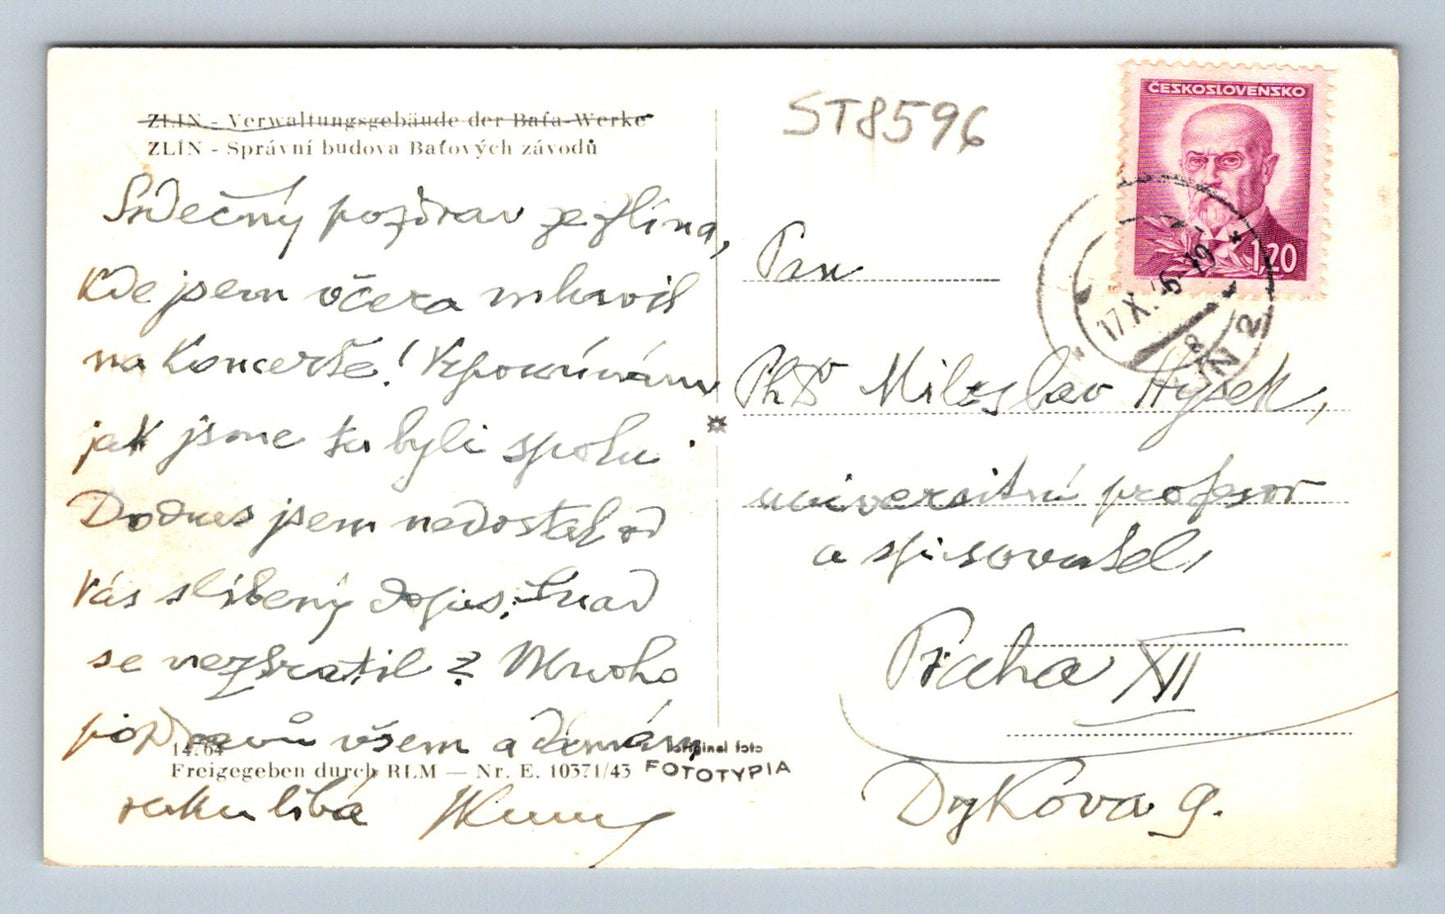 ZLIN - Verwaltungsgebäude der Baťa-Werke
ZLÍN - Správní budova Baťových závodů
ST8596
ČESKOSLOVENSKO
1,20
17.X. 6-19
8
ÍN 2
Srdečný pozdrav ze Zlína,
kde jsem včera mluvil
na koncertě! Vzpomínám
jak jsme tu byli spolu.
Dodnes jsem nedostal od
Vás slíbený dopis, snad
se neztratil? Mnoho
pozdravů všem a dámám
ruku líbá
Pan
PhDr Miloslav Hýsek,
universitní profesor
a spisovatel,
Praha XII
Dykova 9.
14764
Freigegeben durch RLM — Nr. E. 10371/43
original foto
FOTOTYPIA